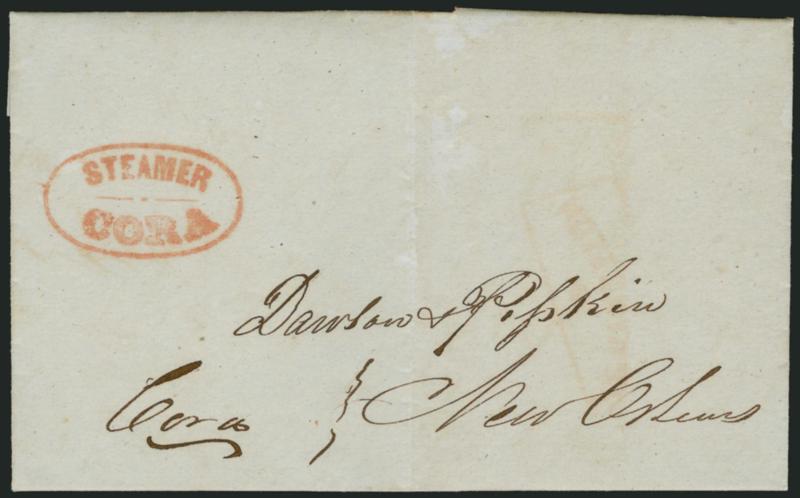 STEAMER
CORA
Dawson & Pipkin
Cora New Orleans